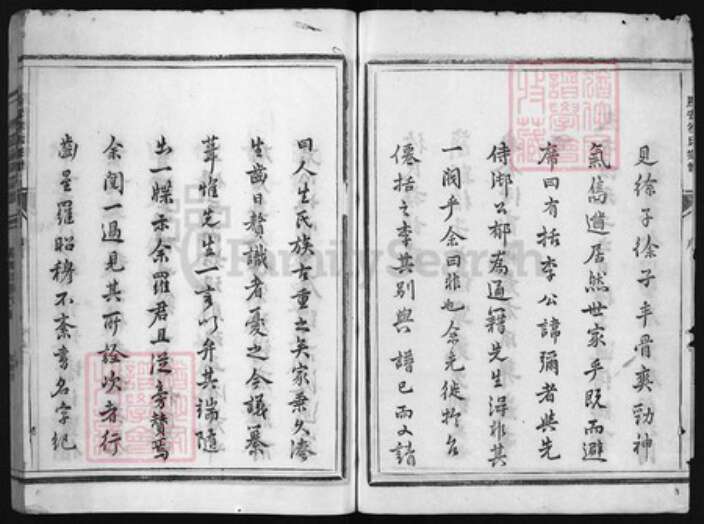 見徐子徐子丰骨爽勁神
氣儁遒居然世家乎既而避
席曰有括李公諱彌者與先
侍御公都為通籍先生得非其
一閥乎余曰非也余先徙於台
僊括之李其別與譜已而又請
曰人生氏族古重之矣家乘久湊
生齒日繁識者憂之今謀纂
葺惟先生一言以弁其端隨
出一牒示余羅君且從旁贊焉
余閱一過見其所詮次者行
齒星羅昭穆不紊書名字紀
FamilySearch